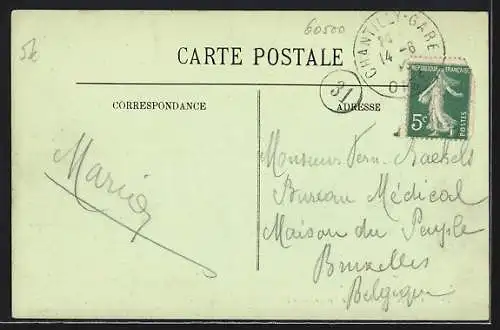 5€
60500
CARTE POSTALE
CHANTILLY-GARE
14 -8
31
REPUBLIQUE FRANÇAISE
5c
POSTES
CORRESPONDANCE
ADRESSE
Marion
Monsieur Fern.
Bureau Médical
Maison du Peuple
Bruxelles
Belgique